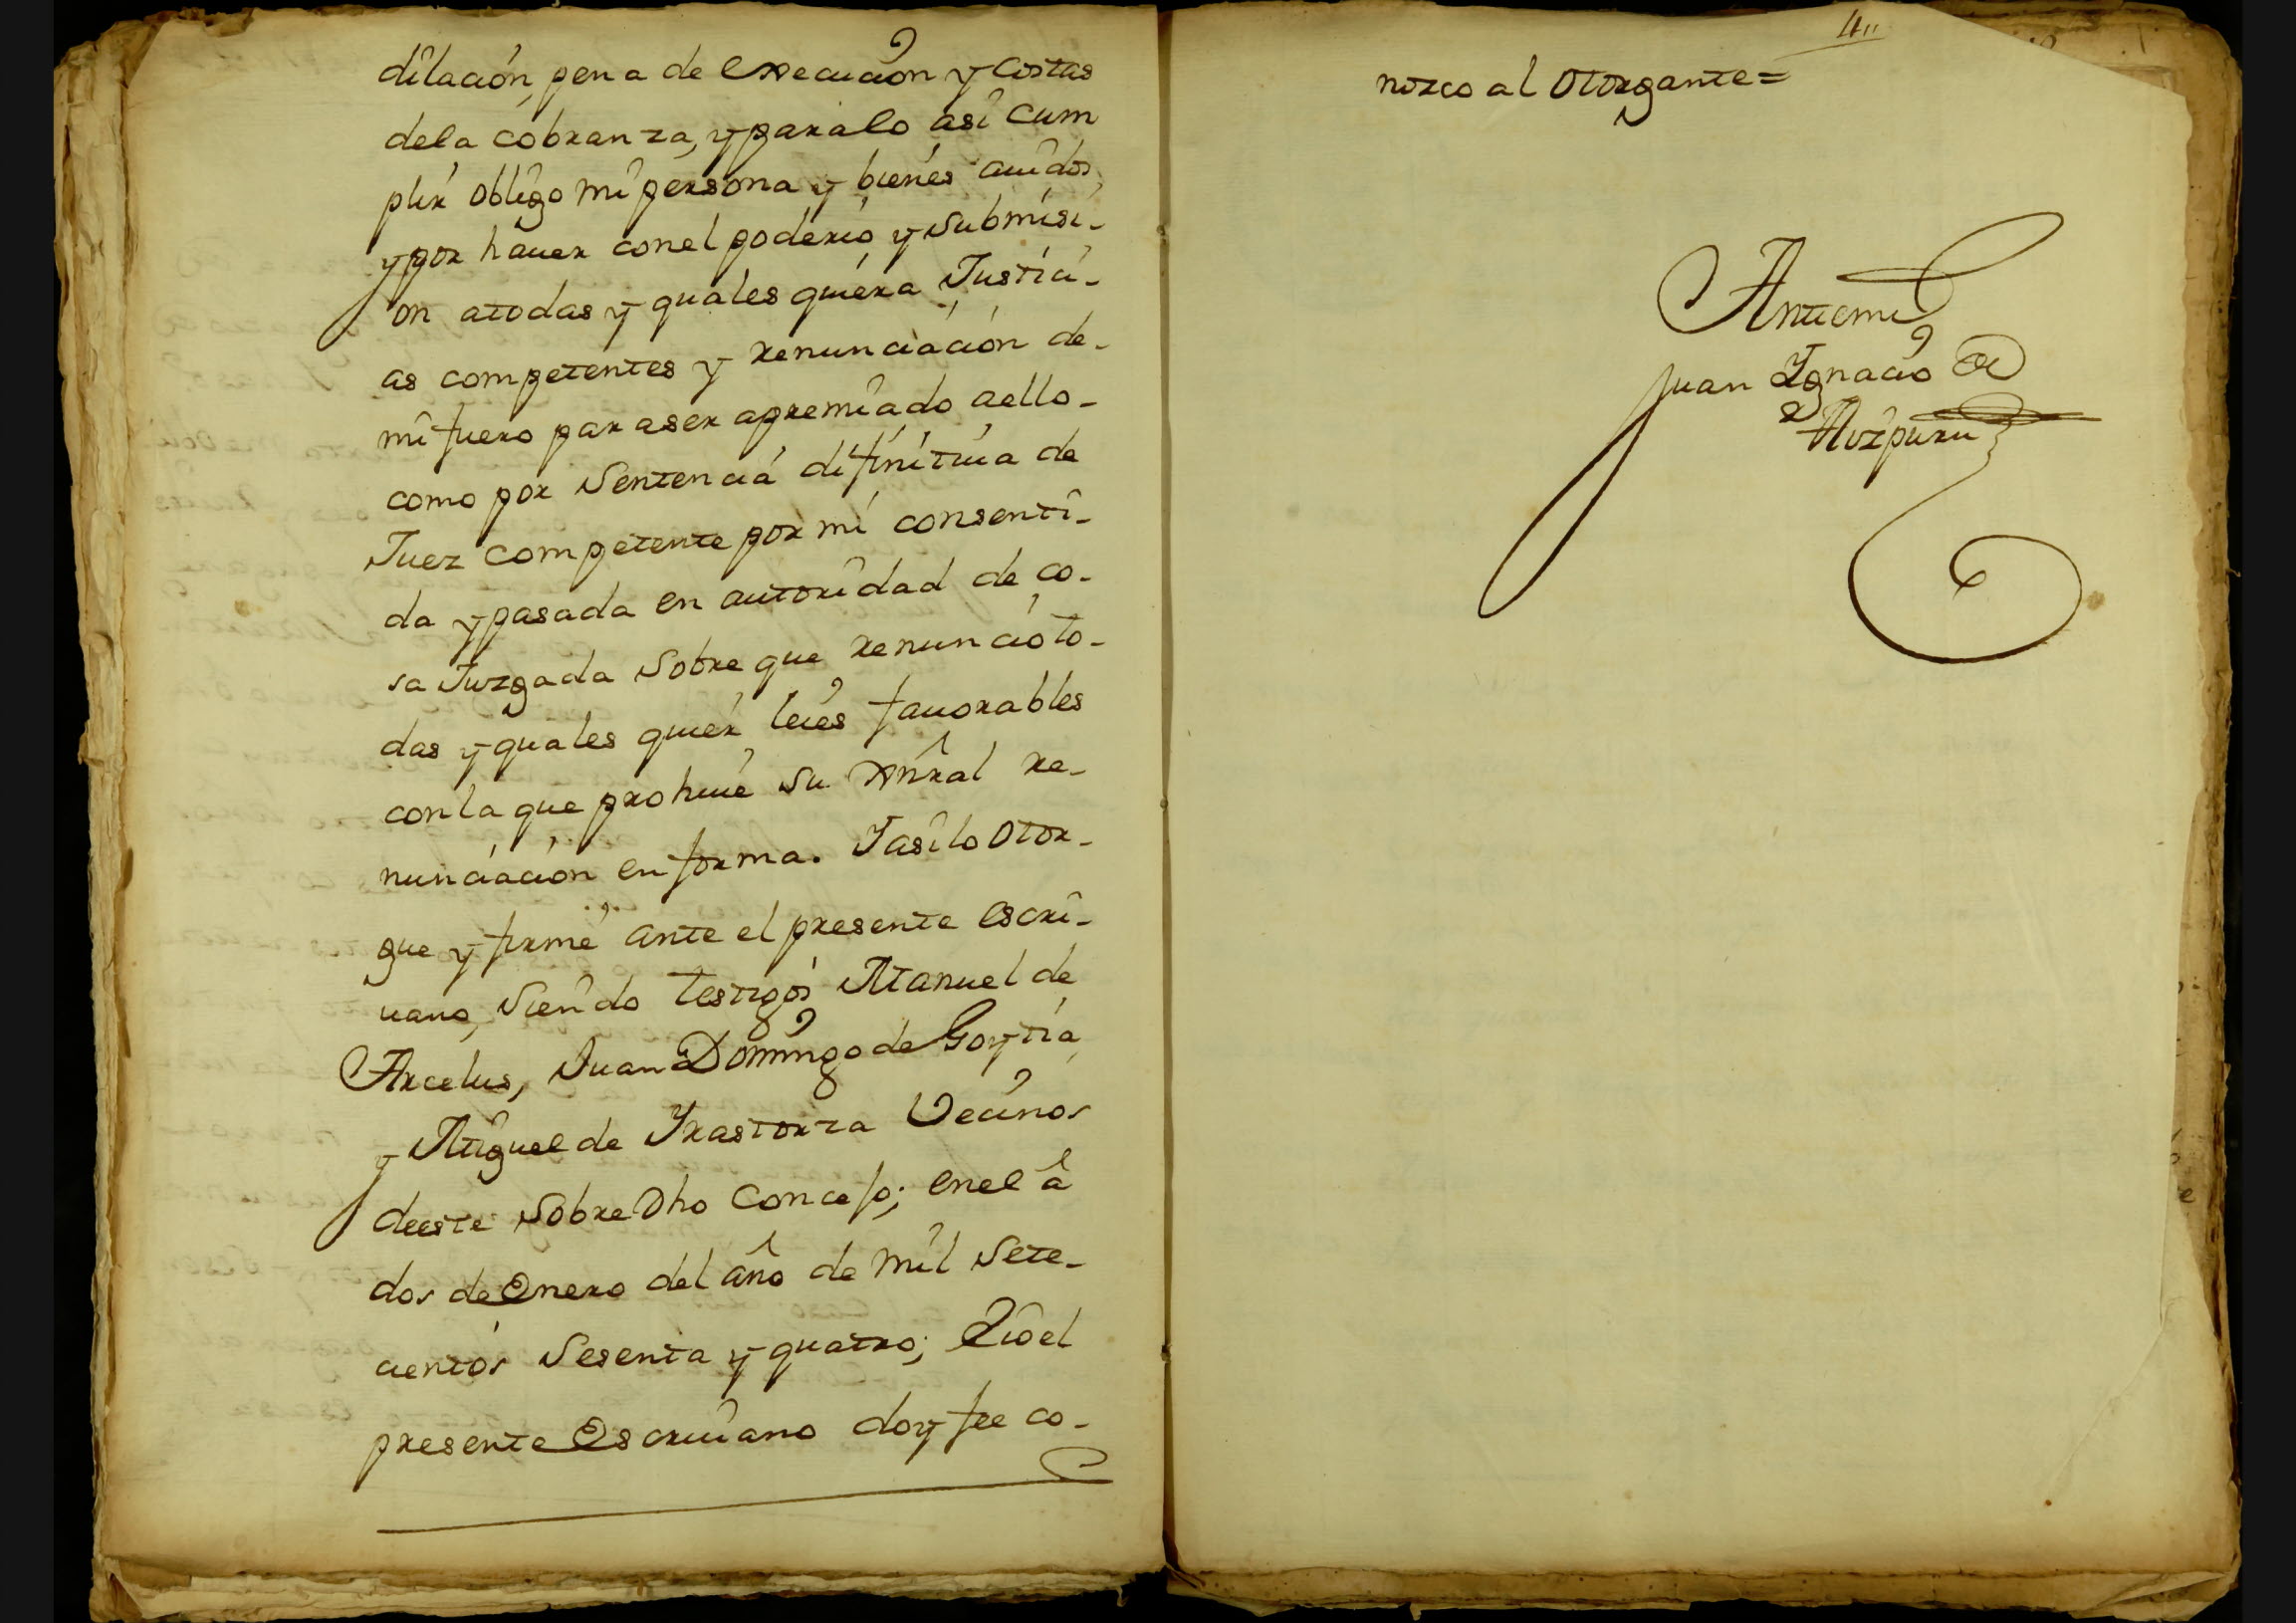 dilación, pena de execución y costas
dela cobranza, y paralo asi cum
plir obligo mi persona y bienes auidos,
y por hauer conel poderio, y submisi-
on atodas y quales quiera Justici-
as competentes y renunciación de-
mi fuero para ser apremiado aello-
como por Sentencia difinitiua de
Juez competente por mi consenti-
da y pasada en autoridad de co-
sa Juzgada sobre que renuncio to-
das y quales quier leies fauorables
con la que prohiue su xnral re-
nunciación en forma. Y asi lo otor-
gue y firmé ante el presente escri-
uano, siendo testigos Manuel de
Arcelus, Juan Domingo de Goytia,
y Miguel de Yrastorza Vecinos
deeste sobre Dho Concejo; enel â
dos de Enero del año de mil sete-
cientos sesenta y quatro; Yo el
presente Escriuano doy fee co-
4"
nozco al otorgante=
Antemi
Juan Ygnacio de
Aozpuru